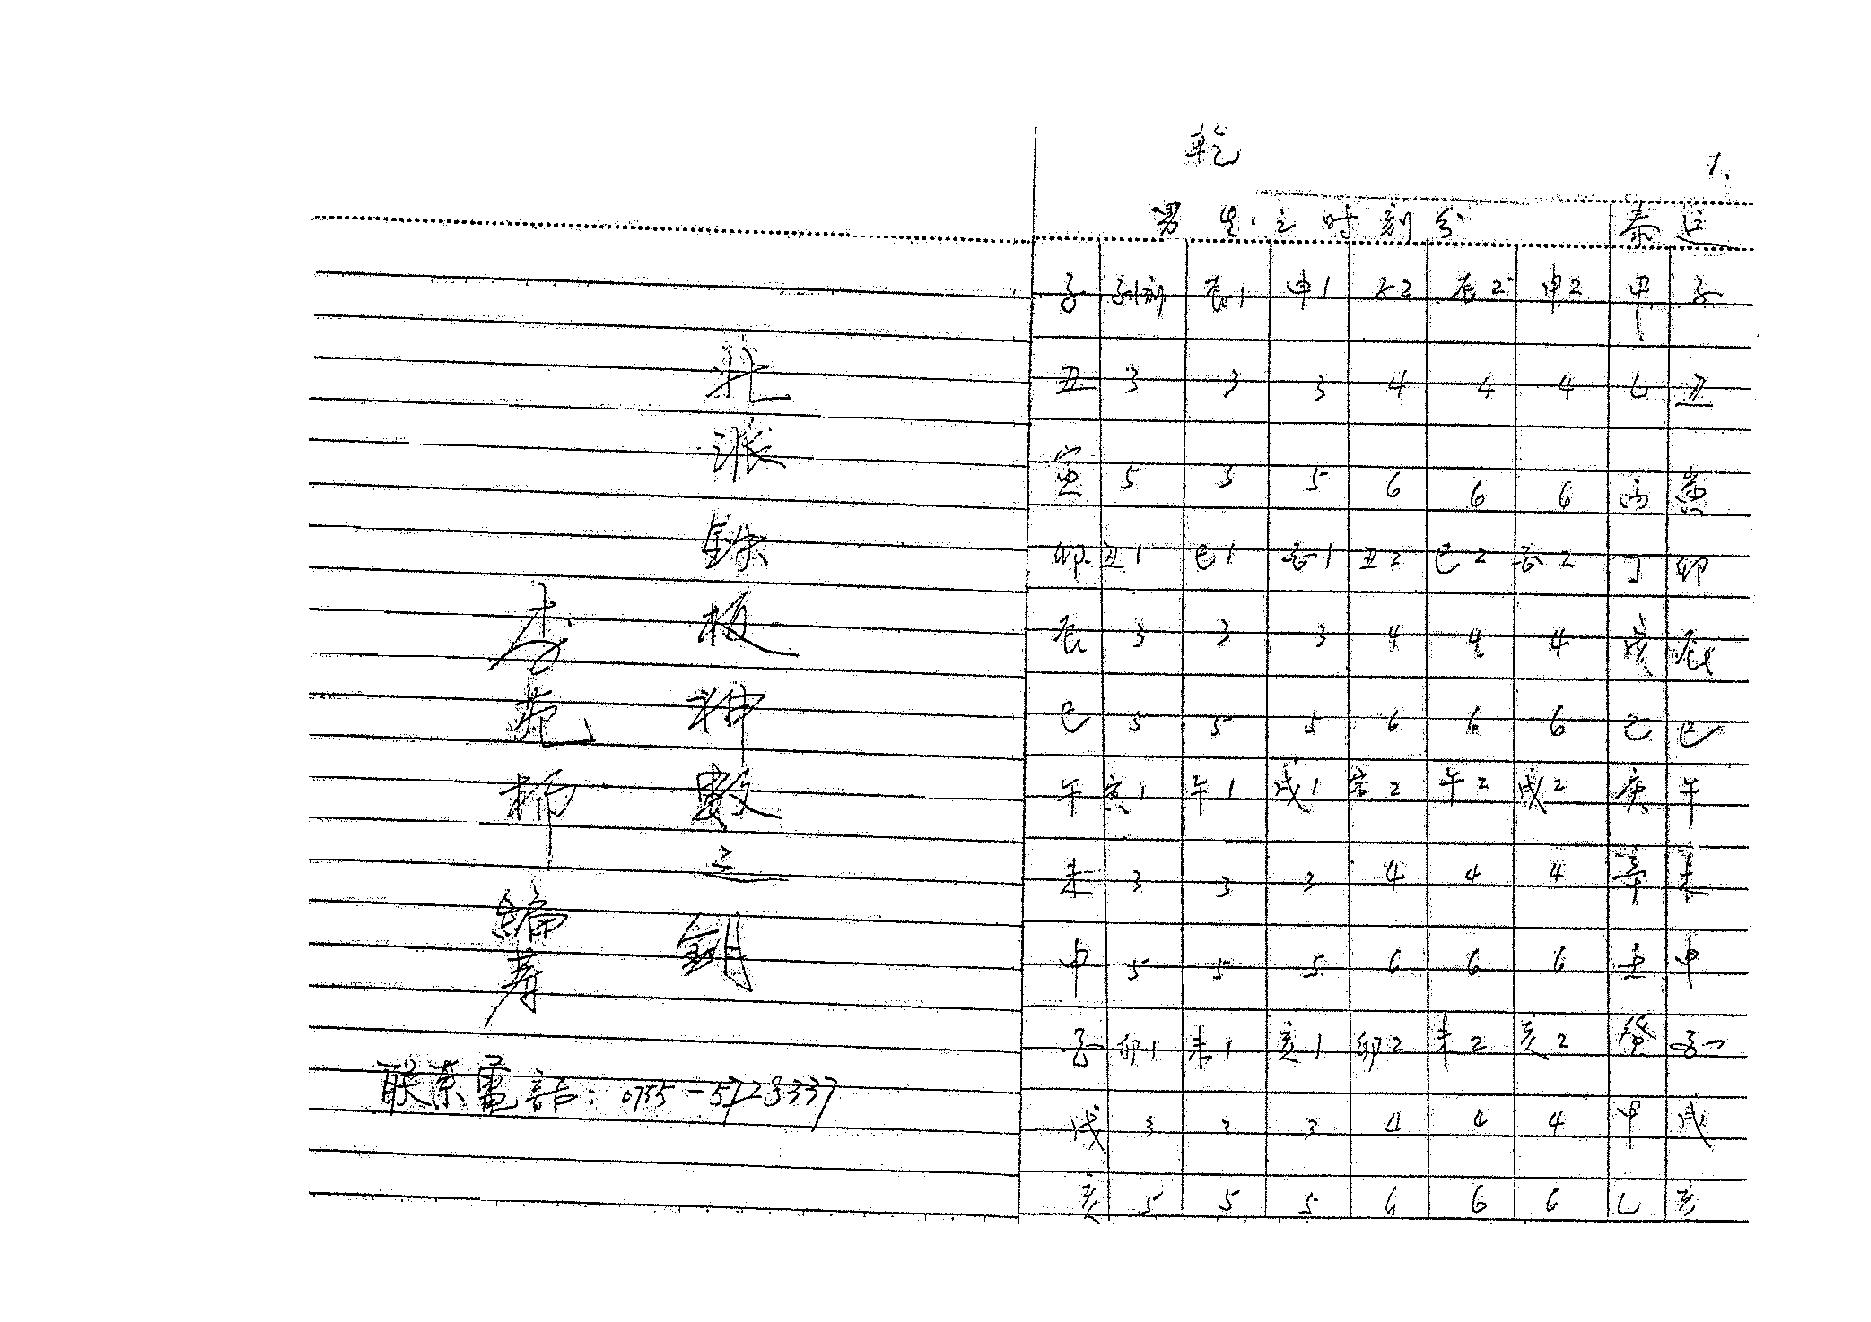 北派鐵板神數之鑰
李 編著
联系電話：0755-5723337
乾
1.
男生之时刻分 泰运
子 子1刻 辰1 申1 子2 辰2 申2 甲 子
丑 3 3 3 4 4 4 乙 丑
寅 5 5 5 6 6 6 丙 寅
卯 丑1 巳1 酉1 丑2 巳2 酉2 丁 卯
辰 3 3 3 4 4 4 戊 辰
巳 5 5 5 6 6 6 己 巳
午 寅1 午1 戌1 寅2 午2 戌2 庚 午
未 3 3 3 4 4 4 辛 未
申 5 5 5 6 6 6 壬 申
酉 卯1 未1 亥1 卯2 未2 亥2 癸 酉
戌 3 3 3 4 4 4 甲 戌
亥 5 5 5 6 6 6 乙 亥